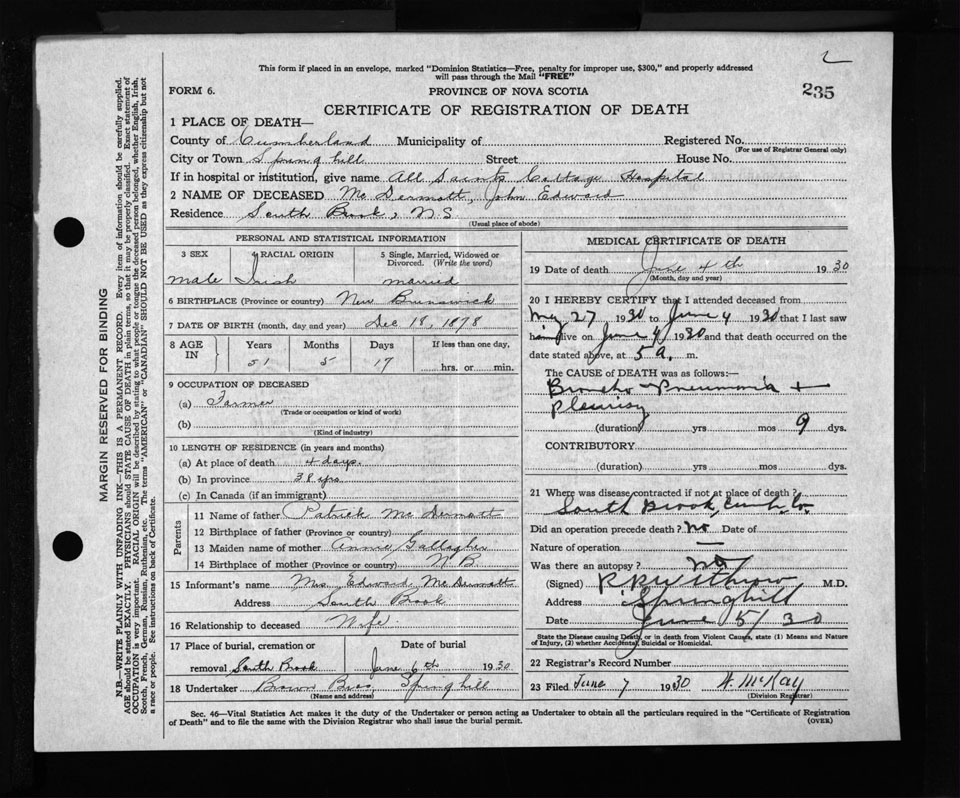 2
This form if placed in an envelope, marked "Dominion Statistics—Free, penalty for improper use, $300," and properly addressed
will pass through the Mail "FREE"
FORM 6.
PROVINCE OF NOVA SCOTIA
235
CERTIFICATE OF REGISTRATION OF DEATH
1 PLACE OF DEATH—
County of Cumberland Municipality of Registered No.
(For use of Registrar General only)
City or Town Springhill Street House No.
If in hospital or institution, give name All Saints Cottage Hospital
2 NAME OF DECEASED Mc Dermott, John Edward
Residence South Brook, N.S.
(Usual place of abode)
PERSONAL AND STATISTICAL INFORMATION
3 SEX 4 RACIAL ORIGIN 5 Single, Married, Widowed or
Divorced. (Write the word)
male Irish married
6 BIRTHPLACE (Province or country) New Brunswick
7 DATE OF BIRTH (month, day and year) Dec 18, 1878
8 AGE IN Years Months Days If less than one day,
51 5 17 hrs. or min.
9 OCCUPATION OF DECEASED
(a) Farmer
(Trade or occupation or kind of work)
(b)
(Kind of industry)
10 LENGTH OF RESIDENCE (in years and months)
(a) At place of death 4 days.
(b) In province 38 yrs.
(c) In Canada (if an immigrant)
Parents
11 Name of father Patrick Mc Dermott
12 Birthplace of father (Province or country)
13 Maiden name of mother Annie Gallagher
14 Birthplace of mother (Province or country) N B.
15 Informant's name Mrs Edward McDermott
Address South Brook
16 Relationship to deceased Wife
17 Place of burial, cremation or Date of burial
removal South Brook June 6th 1930
18 Undertaker Brown Bros. Springhill
(Name and address)
MEDICAL CERTIFICATE OF DEATH
19 Date of death June 4th 1930
(Month, day and year)
20 I HEREBY CERTIFY that I attended deceased from
May 27 1930 to June 4 1930 that I last saw
him alive on June 4 1930 and that death occurred on the
date stated above, at 5 a. m.
The CAUSE of DEATH was as follows:
Broncho-Pneumonia +
Pleurisy
(duration) yrs mos 9 dys.
CONTRIBUTORY
(duration) yrs. mos. dys.
21 Where was disease contracted if not at place of death?
South Brook, Cumb. Co.
Did an operation precede death? No Date of
Nature of operation —
Was there an autopsy? No
(Signed) Withrow M.D.
Address Springhill
Date June 5/30
State the Disease causing Death, or in death from Violent Causes, state (1) Means and Nature
of Injury, (2) whether Accidental, Suicidal or Homicidal.
22 Registrar's Record Number
23 Filed June 7 1930 W. McKay
(Division Registrar)
Sec. 46—Vital Statistics Act makes it the duty of the Undertaker or person acting as Undertaker to obtain all the particulars required in the "Certificate of Registration
of Death" and to file the same with the Division Registrar who shall issue the burial permit. (OVER)
MARGIN RESERVED FOR BINDING
N.B.—WRITE PLAINLY WITH UNFADING INK—THIS IS A PERMANENT RECORD. Every item of information should be carefully supplied.
AGE should be stated EXACTLY. PHYSICIANS should STATE CAUSE OF DEATH in plain terms, so that it may be properly classified. Exact statement of
OCCUPATION is very important. RACIAL ORIGIN will be described by stating to what people or tongue the deceased person belonged, whether English, Irish,
Scotch, French, German, Russian, Ruthenian, etc. The terms "AMERICAN" or "CANADIAN" SHOULD NOT BE USED as they express citizenship but not
a race or people. See instructions on back of Certificate.